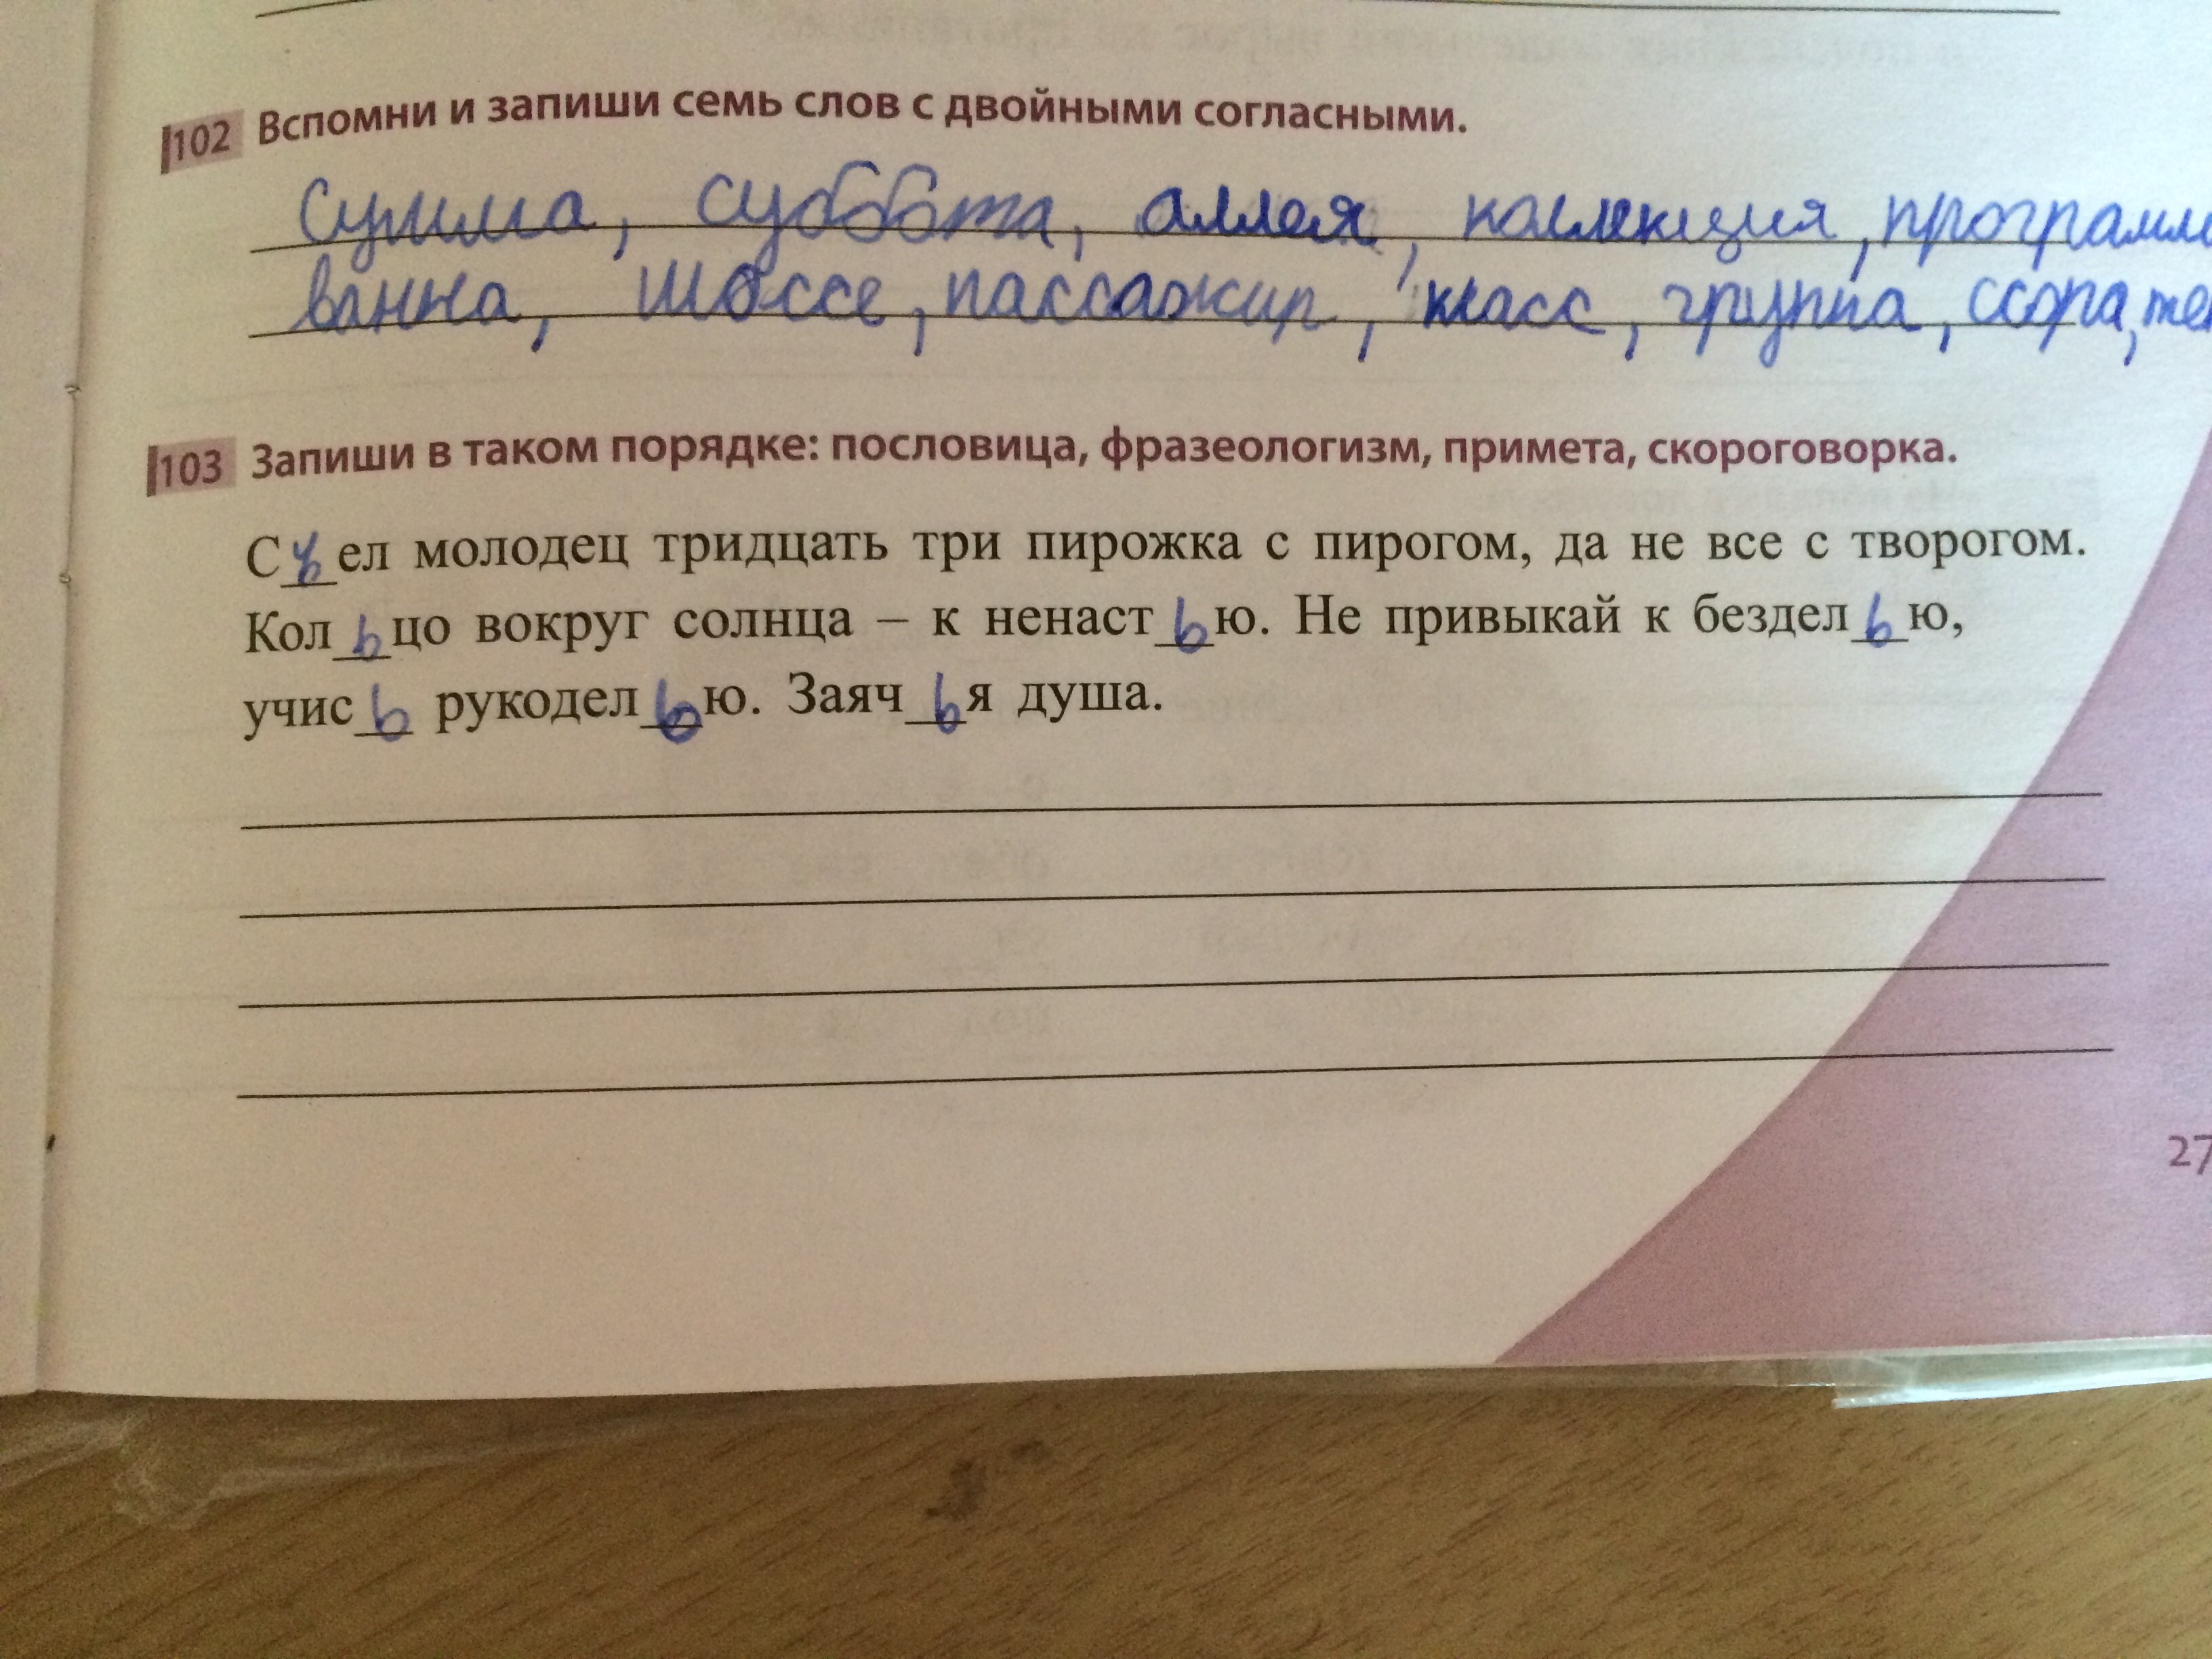 102 Вспомни и запиши семь слов с двойными согласными.
Сумма, суббота, аллея, коллекция, программ
ванна, шоссе, пассажир, класс, группа, ссора, те
103 Запиши в таком порядке: пословица, фразеологизм, примета, скороговорка.
Съел молодец тридцать три пирожка с пирогом, да не все с творогом.
Кольцо вокруг солнца – к ненастью. Не привыкай к безделью,
учись рукоделью. Заячья душа.
27